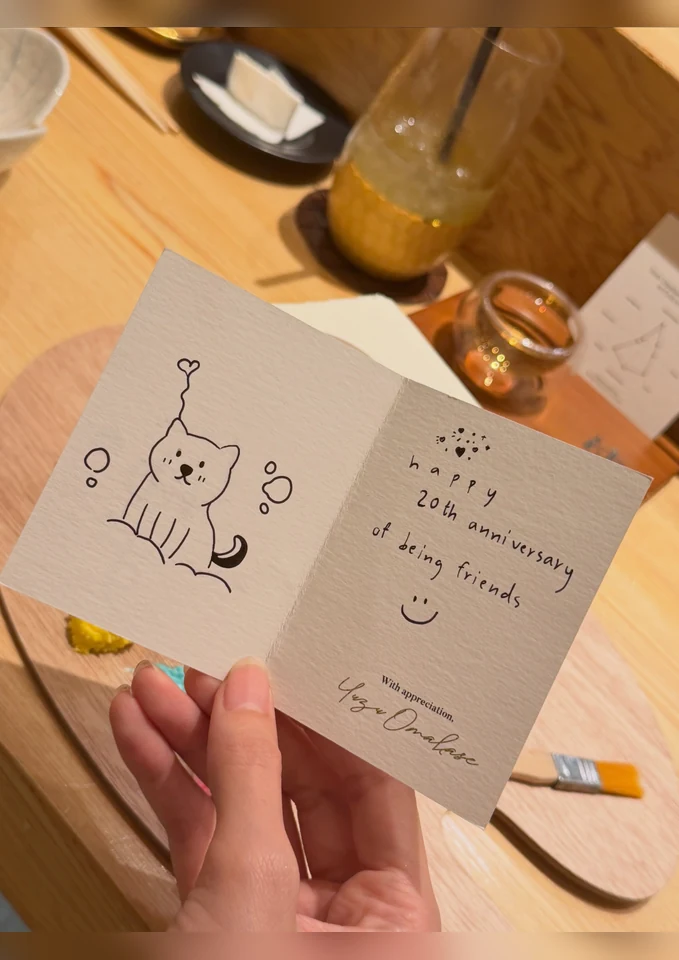 happy
20th anniversary
of being friends
With appreciation,
Yuzu Omakase